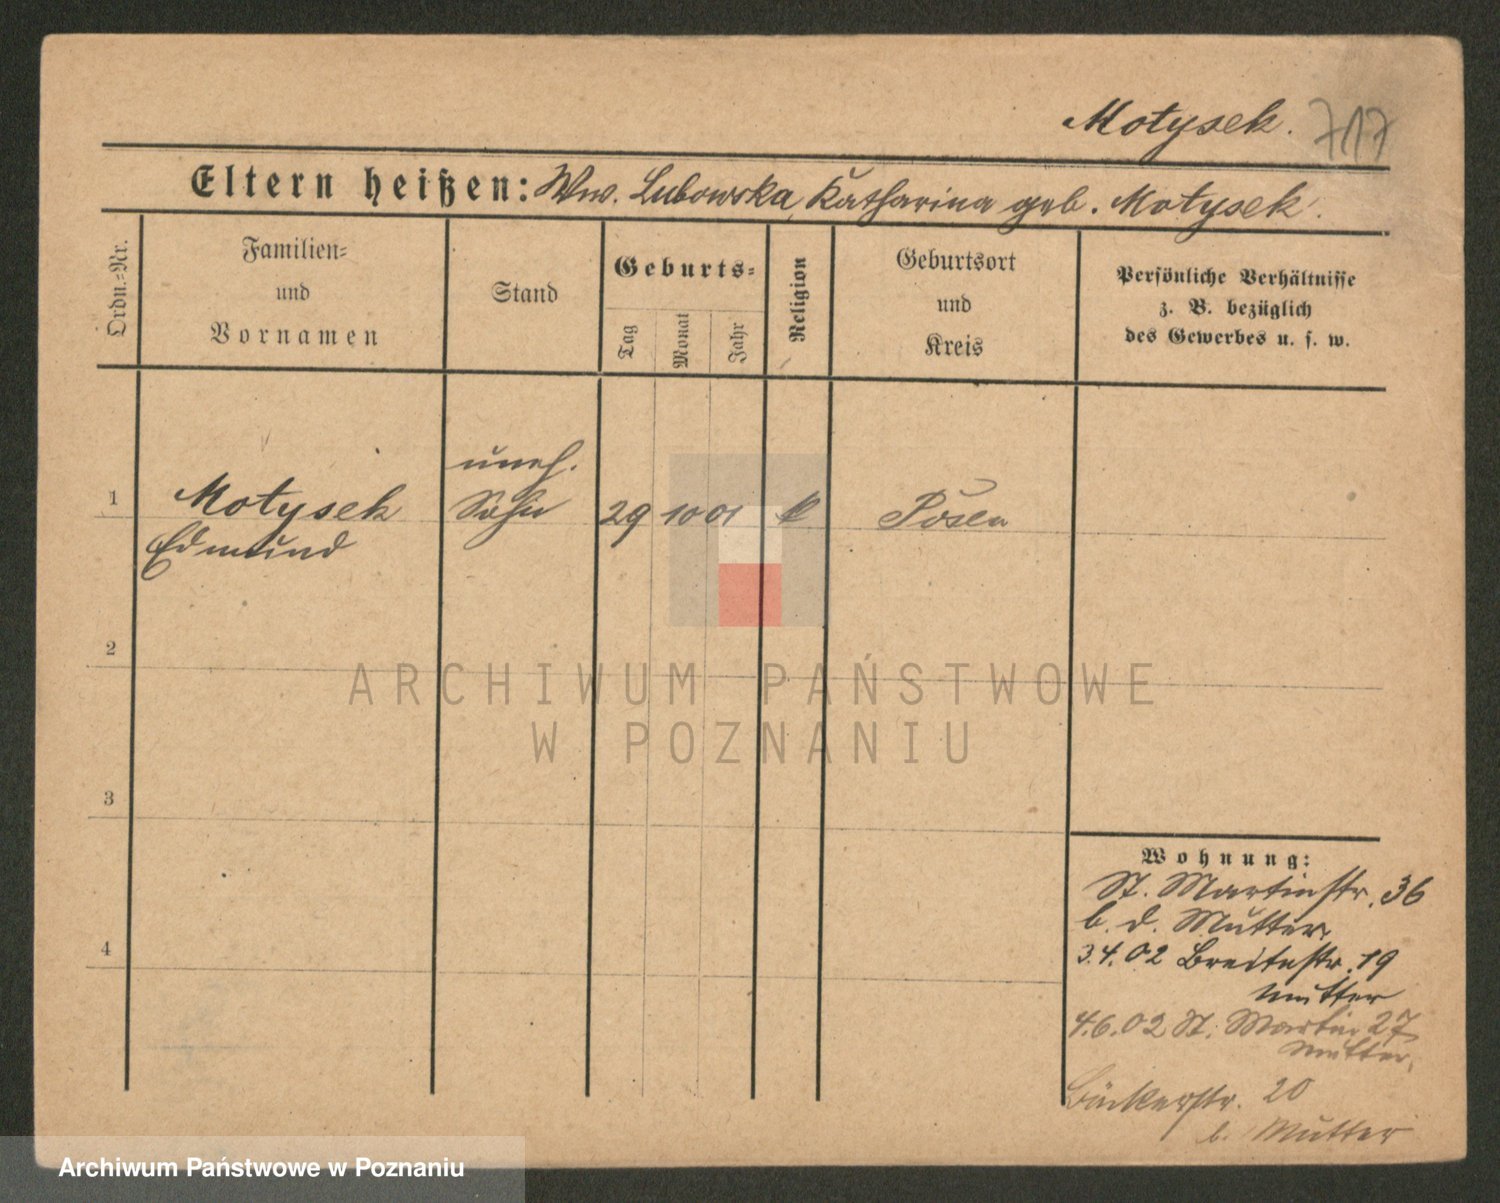 Motysek. 717
Eltern heißen: Ww. Lubowska, Katharina geb. Motysek.
Ordn.=Nr.
Familien=
und
Vornamen
Stand
Geburts=
Tag
Monat
Jahr
Religion
Geburtsort
und
Kreis
Persönliche Verhältnisse
z. B. bezüglich
des Gewerbes u. s. w.
1
Motysek
Edmund
uneh.
Sohn
29 10 01 k Posen
2
3
4
Wohnung:
St. Martinstr. 36
b. d. Mutter.
3.4.02 Breitestr. 19
Mutter
4.6.02 St. Martin 27
Mutter.
Bäckerstr. 20
b. Mutter
ARCHIWUM PAŃSTWOWE
W POZNANIU
Archiwum Państwowe w Poznaniu